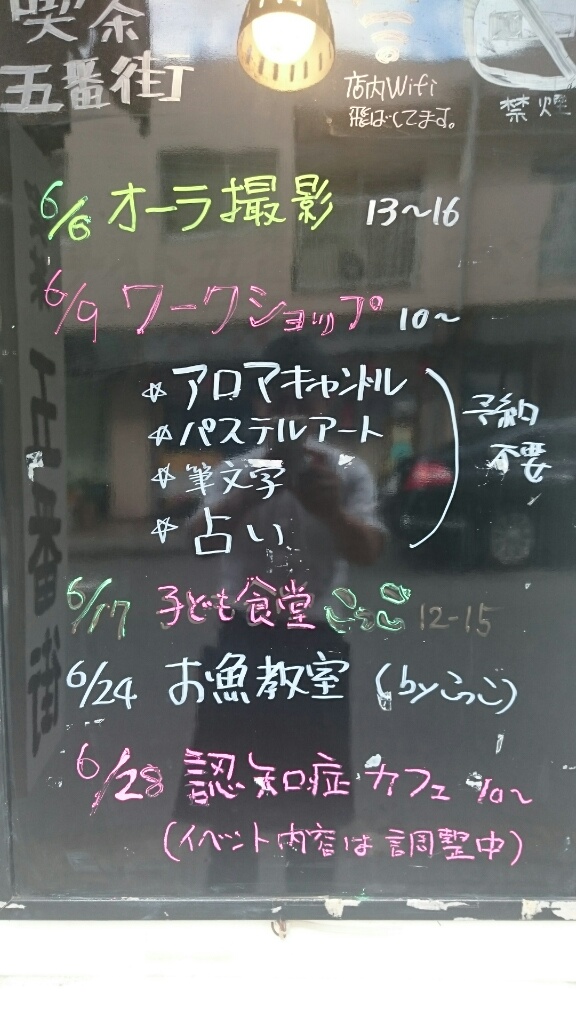 喫茶
五番街
店内Wifi
飛ばしてます。
禁煙
6/6 オーラ撮影 13〜16
6/9 ワークショップ 10〜
☆アロマキャンドル
☆パステルアート
☆筆文字
☆占い
予約
不要
6/17 子ども食堂 こっこ 12-15
6/24 お魚教室 (byこっこ)
6/28 認知症カフェ 10〜
(イベント内容は調整中)
五番街